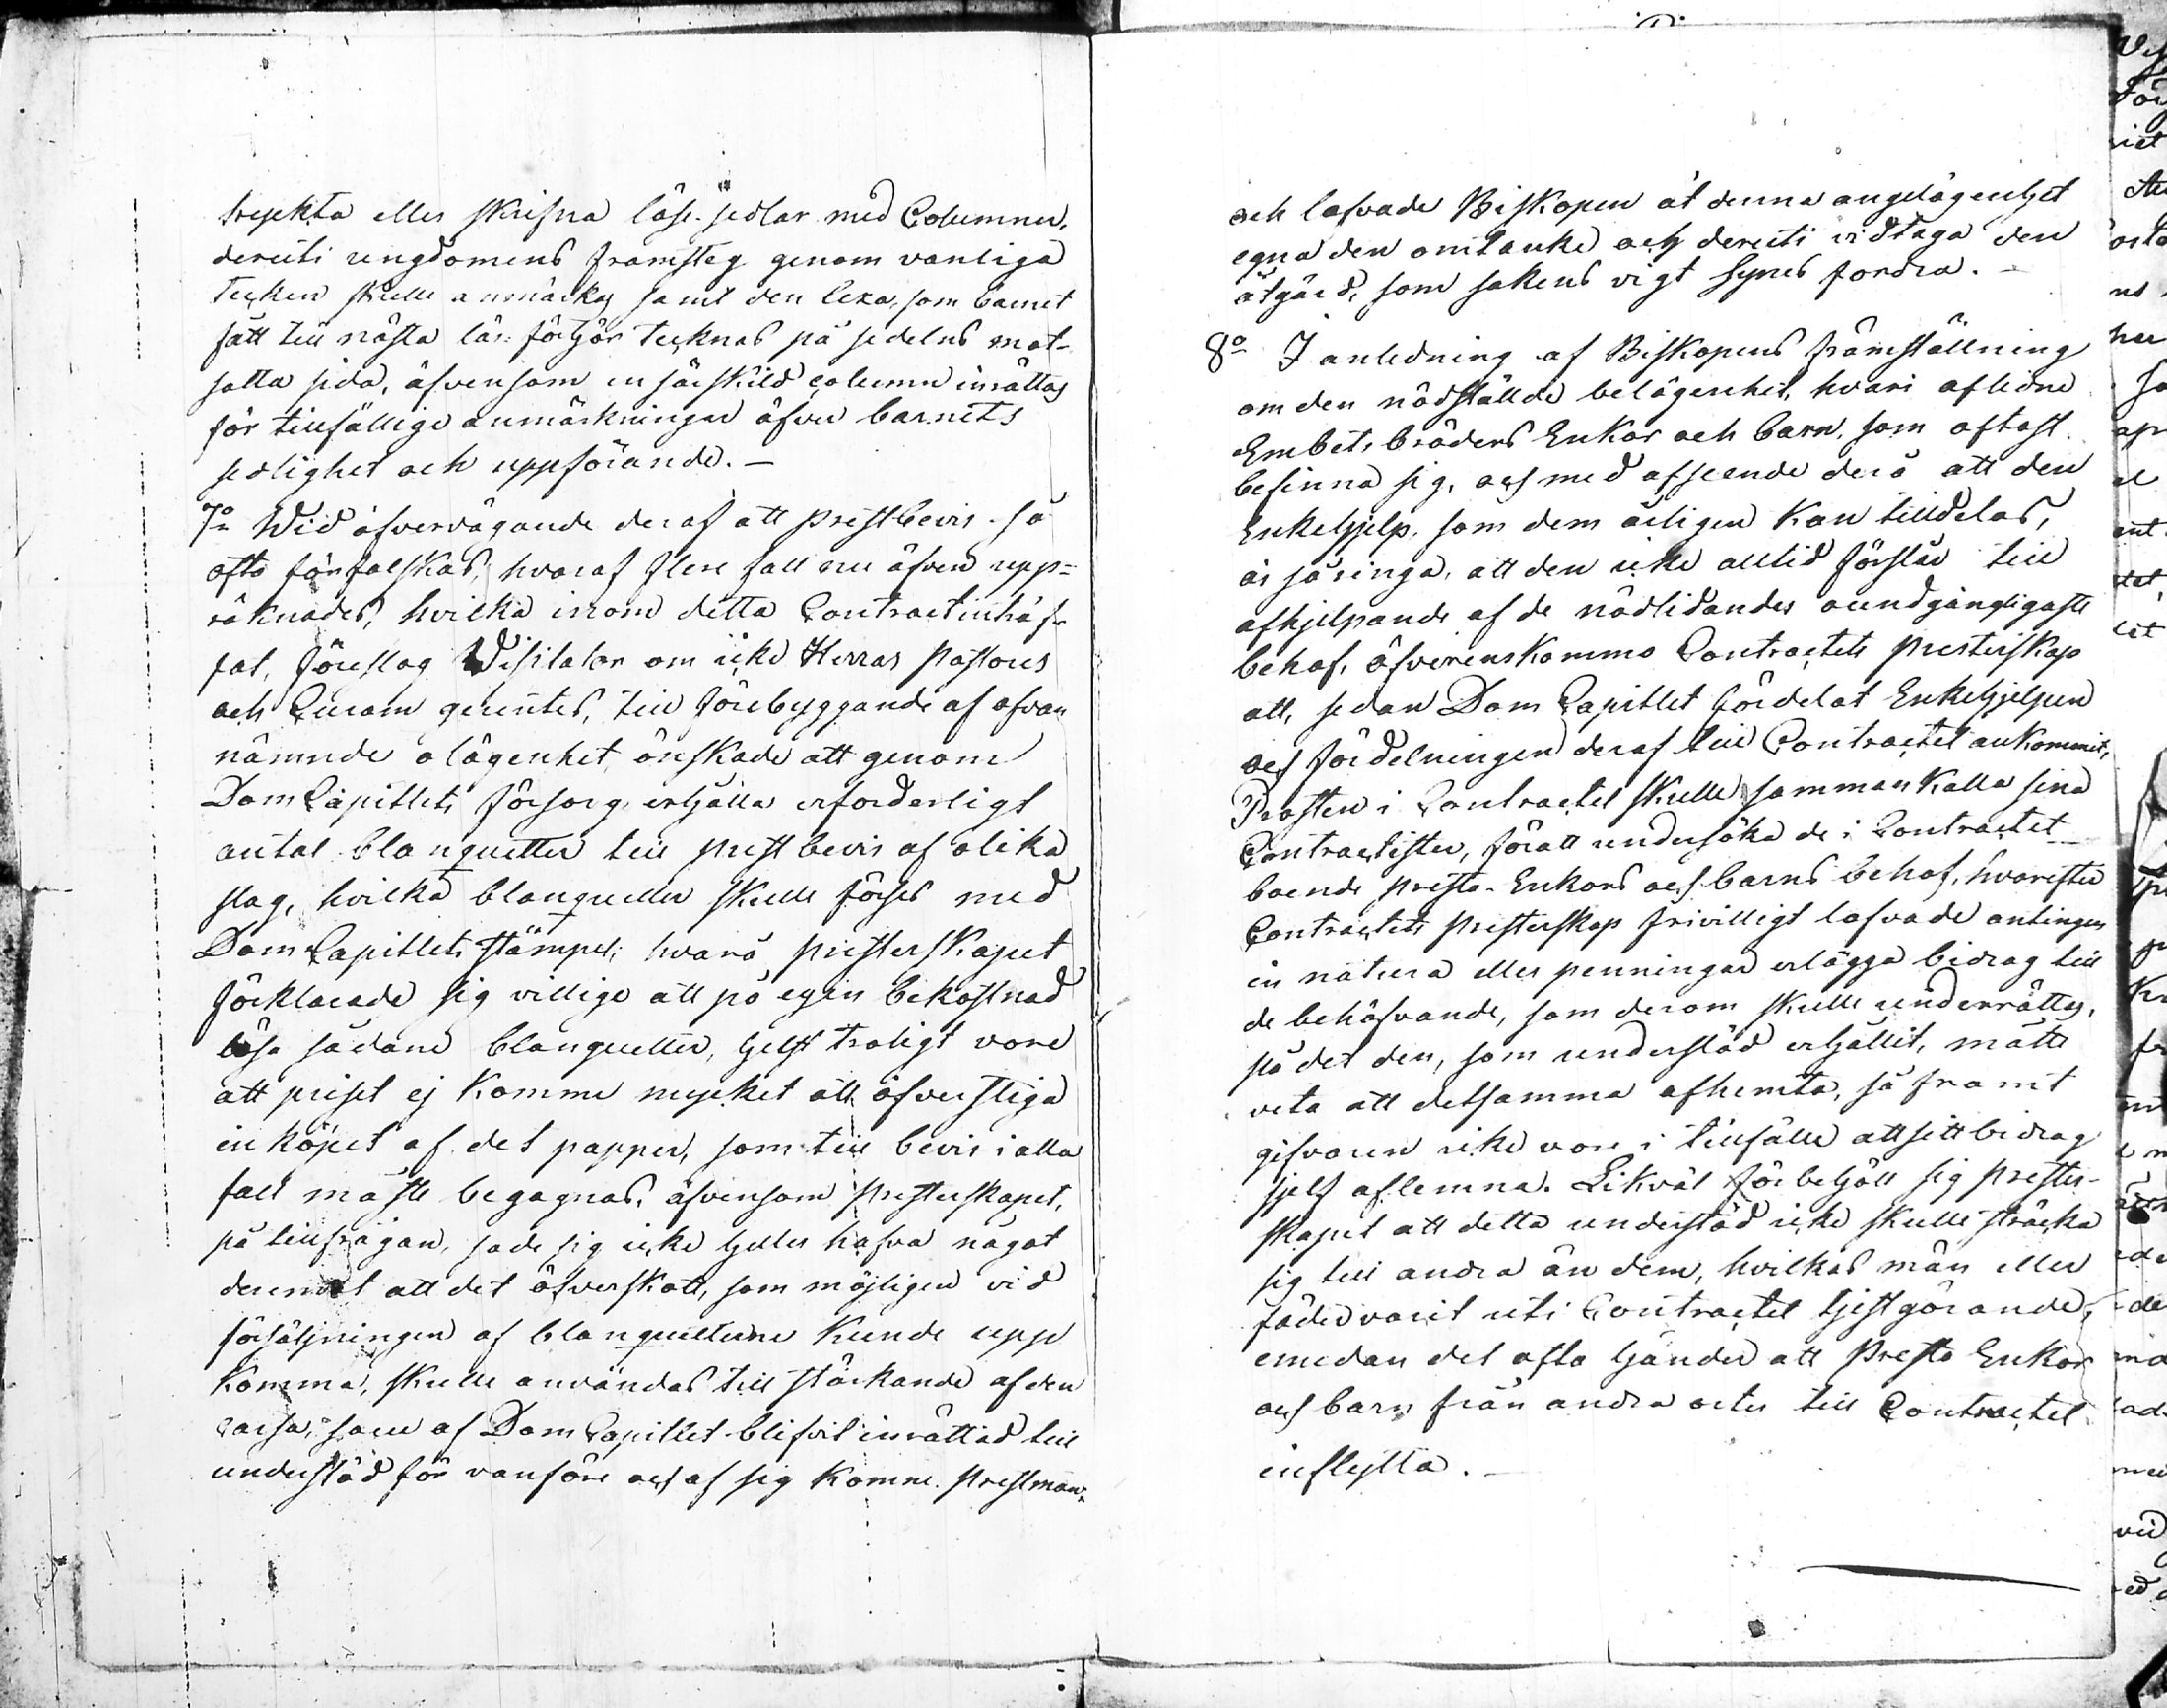 tryckta eller skrifna läse-sedlar med Columner,
deruti ungdomens framsteg genom vanliga
tecken skulle anmärkas samt den lexa, som barnet
fått till nästa läs-förhör tecknas på sedelns mot-
satta sida, äfvensom en särskild column inrättas
för tillfällige anmärkningar öfver barnets
sedlighet och uppförande. —
7o Wid öfvervägande deraf att prestbevis så
ofta förfalskas, hvaraf flere fall nu äfven upp-
räknades, hvilka inom detta Contract inträf-
fat, föreslog Visitator om icke Herrar Pastores
och Curam gerentes, till förebyggande af ofvan
nämnde olägenhet önskade att genom
DomCapitlets försorg erhålla erforderligt
antal blanquetter till prestbevis af olika
slag, hvilka blanquetter skulle förses med
DomCapitlets stämpel; hvarå presterskapet
förklarade sig villige att på egen bekostnad
lösa sådane blanquetter, helst troligt vore
att priset ej komme mycket att öfverstiga
inköpet af det papper, som till bevis i alla
fall måste begagnas, äfvensom presterskapet,
på tillfrågan, sade sig icke heller hafva något
deremot att det öfverskott, som möjligen vid
försäljningen af blanquetterne kunde upp
komma, skulle användas till stärkande af den
cassa, som af DomCapitlet blifvit inrättad till
understöd för vanföre och af sig komne prestmän.
och lofvade Biskopen åt denna angelägenhet
egna den omtanke och deruti vidtaga den
åtgärd, som sakens vigt synes fordra. —
8o I anledning af Biskopens framställning
om den nödställde belägenhet, hvari aflidne
Embets bröders Enkor och barn, som oftast
befinna sig, och med afseende derå att den
Enkehjelp, som dem årligen kan tilldelas,
är så ringa, att den icke alltid förslår till
afhjelpande af de nödlidandes oundgängligaste
behof, öfverenskommo Contractets presterskap
att, sedan Dom Capitlet fördelat Enkehjelpen
och fördelningen deraf till Contractet ankommit,
Prosten i Contractet skulle sammankalla sina
Contractister, för att undersöka de i Contractet
boende Preste-Enkors och barns behof, hvarefter
Contractets presterskap frivilligt lofvade antingen
in natura eller penningar erlägga bidrag till
de behöfvande, som derom skulle underrättas,
på det den, som understöd erhållit, måtte
veta att detsamma afhemta, så framt
gifvaren icke vore i tillfälle att sitt bidrag
sjelf aflemna. Likväl förbehöll sig prester-
skapet att detta understöd icke skulle sträcka
sig till andra än dem, hvilkas män eller
fäder varit uti Contractet tjenstgörande,
emedan det ofta händer att Preste Enkor
och barn från andra orter till Contractet
inflytta. —